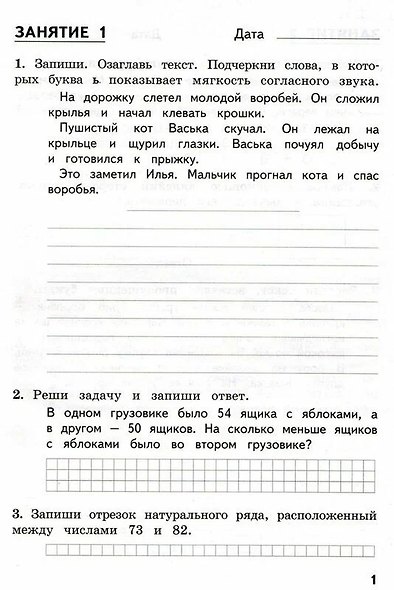 ЗАНЯТИЕ 1
Дата
1. Запиши. Озаглавь текст. Подчеркни слова, в кото-
рых буква ь показывает мягкость согласного звука.
На дорожку слетел молодой воробей. Он сложил
крылья и начал клевать крошки.
Пушистый кот Васька скучал. Он лежал на
крыльце и щурил глазки. Васька почуял добычу
и готовился к прыжку.
Это заметил Илья. Мальчик прогнал кота и спас
воробья.
2. Реши задачу и запиши ответ.
В одном грузовике было 54 ящика с яблоками, а
в другом — 50 ящиков. На сколько меньше ящиков
с яблоками было во втором грузовике?
3. Запиши отрезок натурального ряда, расположенный
между числами 73 и 82.
1